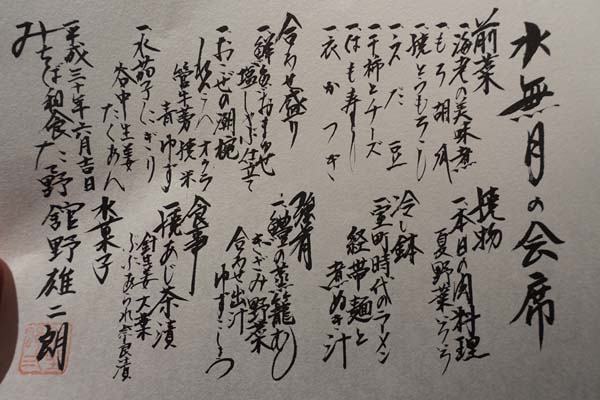 水無月の会席
前菜
一海老の美味煮
一もろ胡瓜
一焼とうもろこし
一えだ豆
一干柿とチーズ
一はも寿し
一衣かつぎ
合わせ盛り
一鮮魚おまかせ
塩しゃぶ仕立て
一おこぜの潮椀
オクラ
管牛蒡焼米
青ゆず
一水茄子にぎり
谷中生姜
たくあん
焼物
一本日の肉料理
夏野菜
冷し鉢
一室町時代のラーメン
経帯麺と
煮ぬき汁
強肴
一鱧の蒸籠むし
きざみ野菜
合わせ出汁
ゆずこしょう
食事
一焼あじ茶漬
針生姜大葉
ぶぶあられ奈良漬
水菓子
平成三十年六月吉日
みちば和食たて野舘野雄二朗